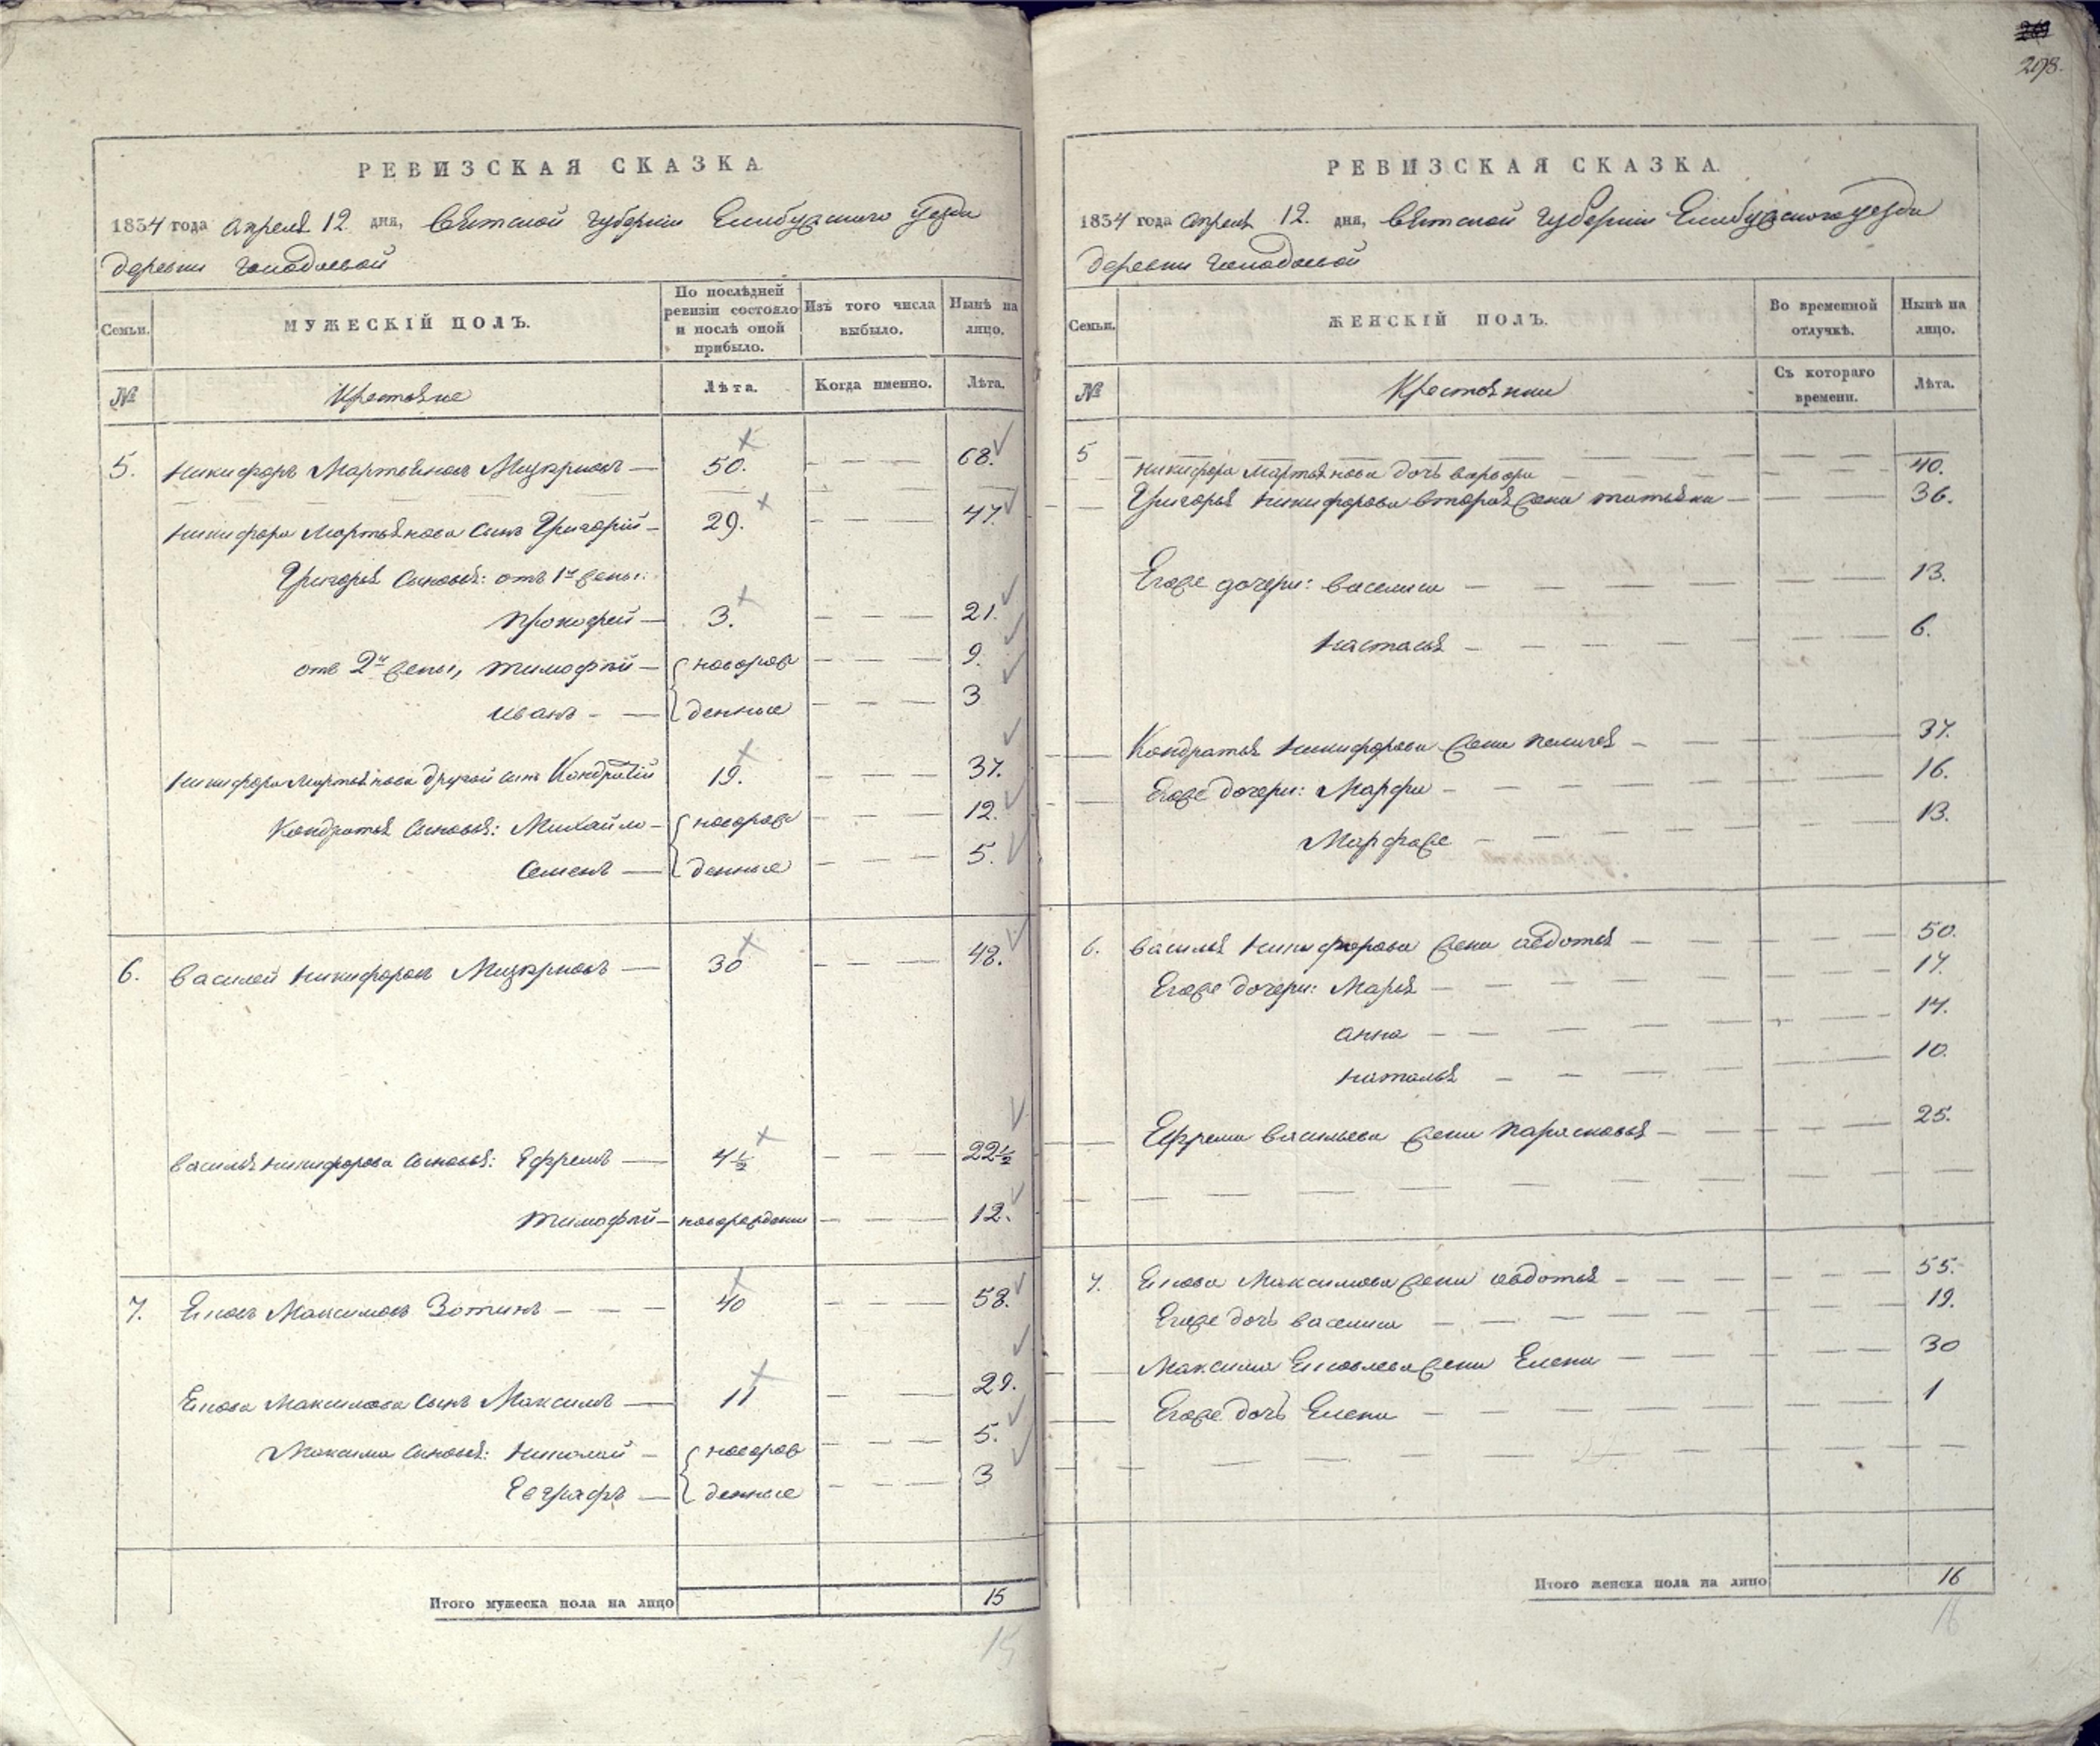 298.
РЕВИЗСКАЯ СКАЗКА
1834 года апреля 12 дня, Вятской губернии Елабужского уезда
деревни
Семьи.
МУЖЕСКІЙ ПОЛЪ.
По послѣдней ревизіи состояло и послѣ оной прибыло.
Изъ того числа выбыло.
Нынѣ на лицо.
№ Крестьяне Лѣта. Когда именно. Лѣта.
5. Никифоръ Мартьяновъ — 50. — — — 68.
Никифора Мартьянова сынъ Григорій — 29. — — — 47
Григорья сыновья: отъ 1й жены:
Прокофей — 3. — — — 21.
отъ 2й жены, Тимофей — новорож — — — 9.
Иванъ — денные — — — 3
Никифора Мартьянова другой сынъ Кондратій 19. — — — 37.
Кондратья сыновья: Михайло — новорож — — — 12.
Семенъ — денные — — — 5.
6. Василей Никифоровъ — 30 — — — 48.
Василья Никифорова сыновья: Ефремъ — 4½ — — — 22½
Тимофей — новорожденн — — — 12.
7. Максимовъ Зотинъ — — — 40 — — — 58.
Максимова сынъ Максимъ — 11 — — — 29.
Максима сыновья: Николай — новорож — — — 5.
Евграфъ — денные — — — 3
Итого мужеска пола на лицо 15
15
РЕВИЗСКАЯ СКАЗКА.
1834 года апреля 12. дня, Вятской губернии Елабужского уезда
деревни
Семьи.
ЖЕНСКІЙ ПОЛЪ.
Во временной отлучкѣ.
Нынѣ на лицо.
№ Крестьянки Съ котораго времени. Лѣта.
5
Никифора Мартьянова дочь Варвара 40.
Григорья Никифорова вторая жена Татьяна — 36.
Егоже дочери: Василиса — 13.
Настасья — 6.
Кондратья Никифорова жена Пелагея — 37.
Егоже дочери: Марфа — 16.
Марфаже — 13.
6. Василья Никифорова жена Авдотья — 50.
Егоже дочери: Марья — 17.
Анна — 14.
Наталья — 10.
Ефрема Васильева жена Парасковья — 25.
7. Максимова жена Авдотья — 55.
Егоже дочь Василиса — 19.
Максима жена Елена — 30
Егоже дочь Елена — 1
Итого женска пола на лицо 16
16